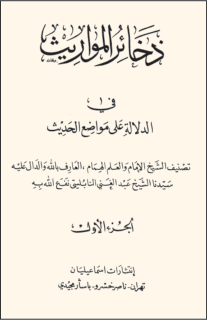 ذخائر المواريث
في
الدلالة على مواضع الحديث
تصنيف الشيخ الإمام والعلم الهمام، العارف بالله والدال عليه
سيدنا الشيخ عبد الغني النابلسي نفع الله به
الجزء الأول
انتشارات اسماعيليان
تهران - ناصر خسرو - پاساژ مجيدي